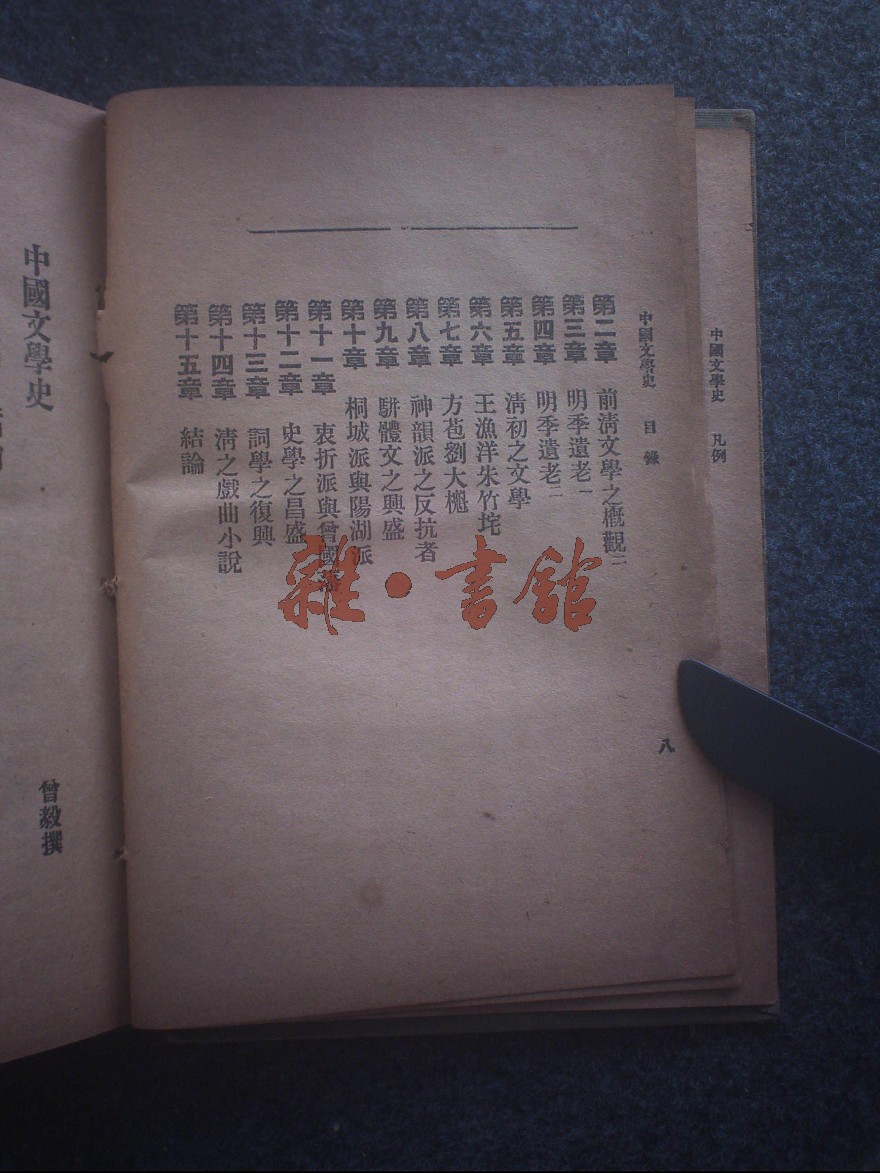 中國文學史 凡例
中國文學史 目錄
第二章 前清文學之概觀二
第三章 明季遺老一
第四章 明季遺老二
第五章 清初之文學
第六章 王漁洋朱竹垞
第七章 方苞劉大櫆
第八章 神韻派之反抗者
第九章 駢體文之興盛
第十章 桐城派與陽湖派
第十一章 衷折派與曾國藩
第十二章 史學之昌盛
第十三章 詞學之復興
第十四章 清之戲曲小說
第十五章 結論
八
中國文學史
曾毅撰
雜·書館